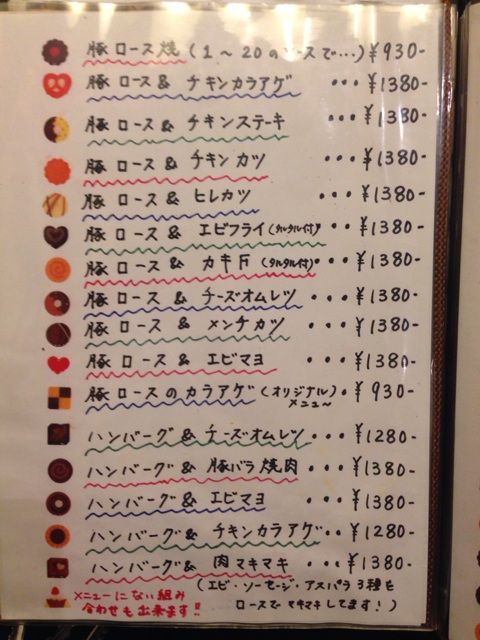 豚ロース焼(1〜20のソースで…)¥930-
豚ロース&チキンカラアゲ ・・・¥1380-
豚ロース&チキンステーキ ・・・¥1380-
豚ロース&チキンカツ ・・・¥1380-
豚ロース&ヒレカツ ・・・¥1380-
豚ロース&エビフライ(タルタル付)・・¥1380-
豚ロース&カキF(タルタル付)・・・¥1380-
豚ロース&チーズオムレツ ・・・¥1380-
豚ロース&メンチカツ ・・・¥1380-
豚ロース&エビマヨ ・・・¥1380-
豚ロースのカラアゲ(オリジナルメニュ〜)・¥930-
ハンバーグ&チーズオムレツ・・・¥1280-
ハンバーグ&豚バラ焼肉 ・・・¥1380-
ハンバーグ&エビマヨ ・・・¥1380-
ハンバーグ&チキンカラアゲ・・¥1280-
ハンバーグ&肉マキマキ ・・・¥1380-
(エビ・ソーセージ・アスパラ3種を
ロースでマキマキしてます!)
メニューにない組み
合わせも出来ます!!